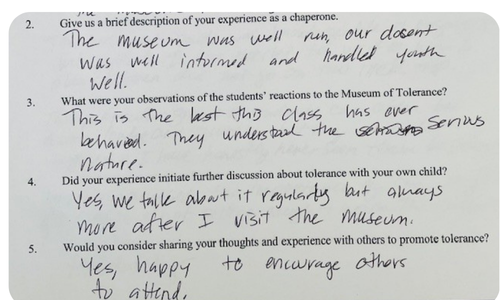 2. Give us a brief description of your experience as a chaperone.
The museum was well run, our docent
was well informed and handled youth
well.
3. What were your observations of the students' reactions to the Museum of Tolerance?
This is the best this class has ever
behaved. They understood the serious
nature.
4. Did your experience initiate further discussion about tolerance with your own child?
Yes, we talk about it regularly but always
more after I visit the museum.
5. Would you consider sharing your thoughts and experience with others to promote tolerance?
Yes, happy to encourage others
to attend.